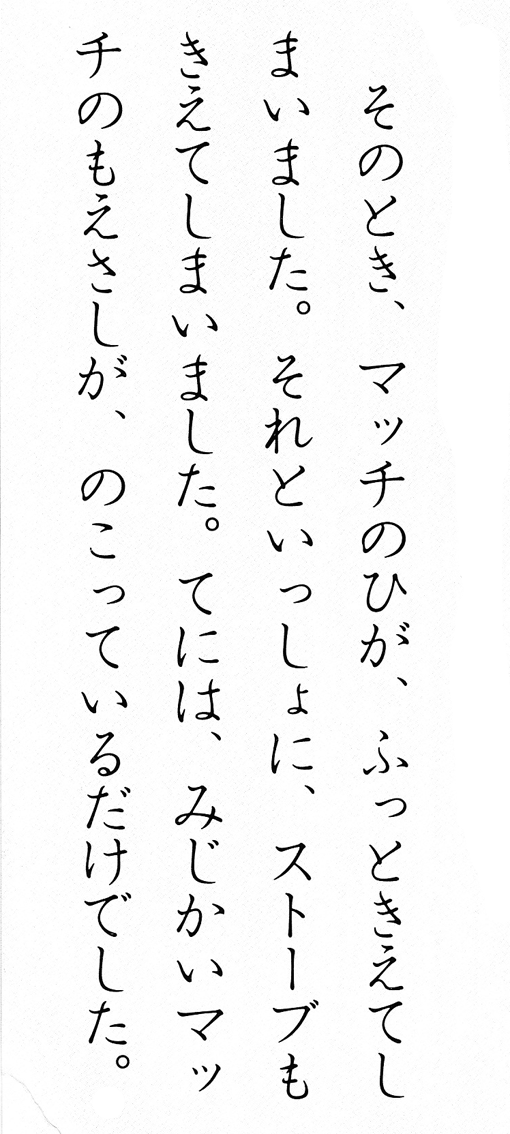 そのとき、マッチのひが、ふっときえてし
まいました。それといっしょに、ストーブも
きえてしまいました。てには、みじかいマッ
チのもえさしが、のこっているだけでした。